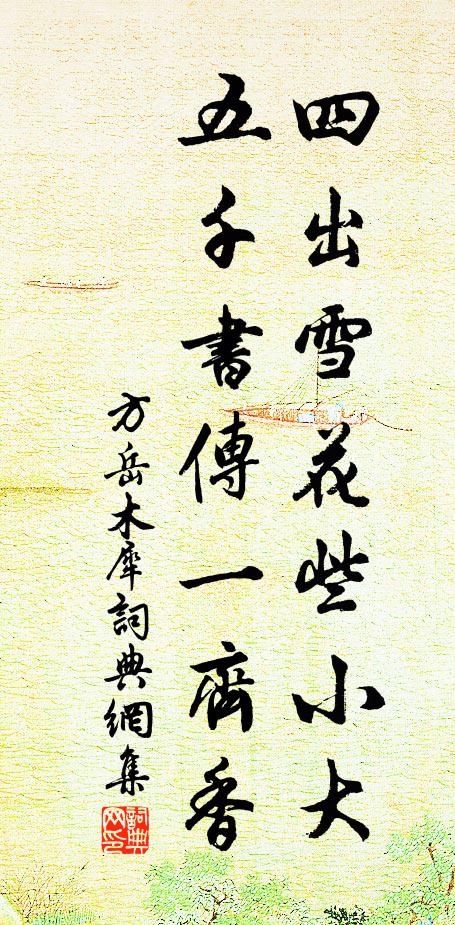 四出雪花些小大
五千書傳一齊香
方岳木犀詞典網集
詞典网印